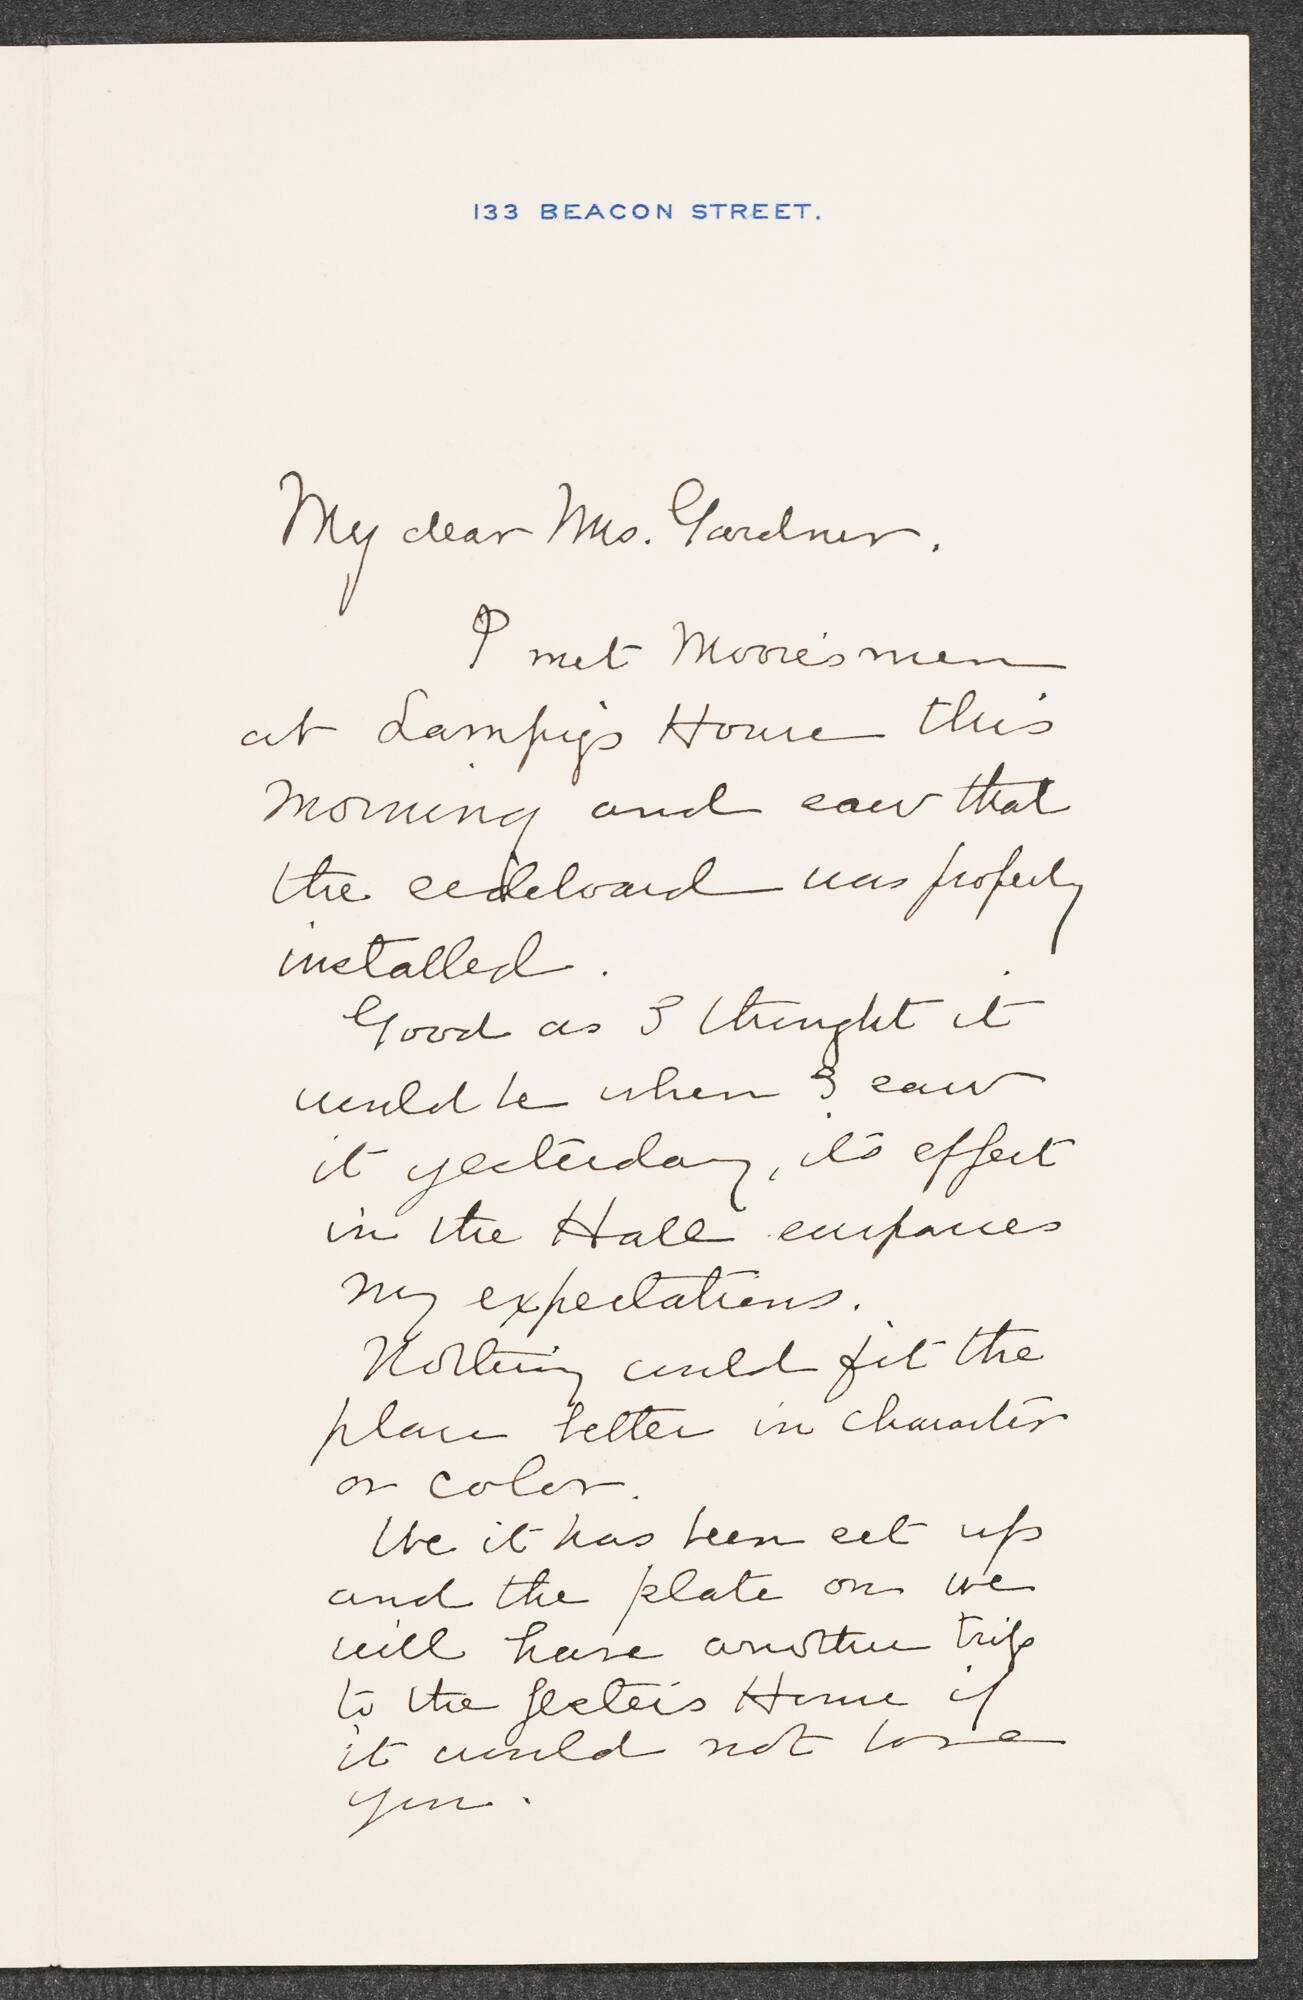 133 BEACON STREET.
My dear Mrs. Gardner.
I met Moore's men
at Lampy's House this
morning and saw that
the sideboard was properly
installed.
Good as I thought it
would be when I saw
it yesterday, its effect
in the Hall surpasses
my expectations.
Nothing could fit the
place better in character
or color.
We it has been set up
and the plate on we
will have another trip
to the Jester's House if
it would not bore
you.